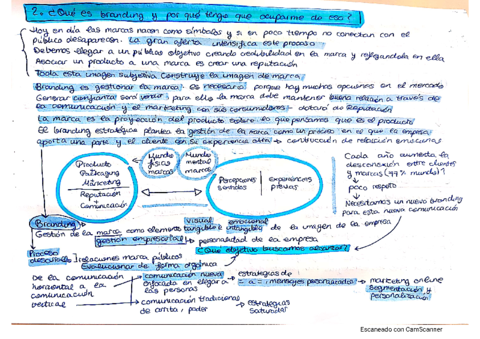 2. ¿Qué es branding y por qué tengo que ocuparme de eso?
Hoy en día las marcas nacen como símbolos y si en poco tiempo no conectan con el
público desaparecen. La gran oferta intensifica este proceso
Debemos llegar a un público objetivo creando credibilidad en la marca y reflejándola en ella
Asociar un producto a una marca es crear una reputación
Toda esta imagen subjetiva construye la imagen de marca.
Branding es gestionar la marca es necesario porque hay muchas opciones en el mercado
Generar confianza será vender para ello la marca debe mantener buena relación a través de
la comunicación y el marketing con sus consumidores → dotará de reputación
La marca es la proyección del producto sobre lo que pensamos que es el producto
El branding estratégico plantea la gestión de la marca como un proceso en el que la empresa
aporta una parte y el cliente con su experiencia otra → construcción de relación emocional
Producto
Packaging
Marketing
Reputación
+
Comunicación
Mundo
físico
marcas
Mundo
mental
marcas
Percepciones
sentidos
experiencias
previas
Cada año aumenta la
desconexión entre clientes
y marcas (77% mundo)?
poco respeto
Necesitamos un nuevo branding
para esta nueva comunicación
Branding
visual emocional
Gestión de la marca como elemento tangible e intangible de la imagen de la empresa
gestión empresarial → personalidad de la empresa
Proceso
desarrollo
Relaciones marca públicos
Evolucionar de forma orgánica
¿Qué objetivo buscamos alcanzar?
De la comunicación
horizontal a la
comunicación
vertical
comunicación nueva
enfocada en llegar a
las personas
estrategias de
= a = mensajes personalizados → marketing online
segmentación y
personalización
comunicación tradicional
de arriba / poder
→ estrategias
saturadas
Escaneado con CamScanner